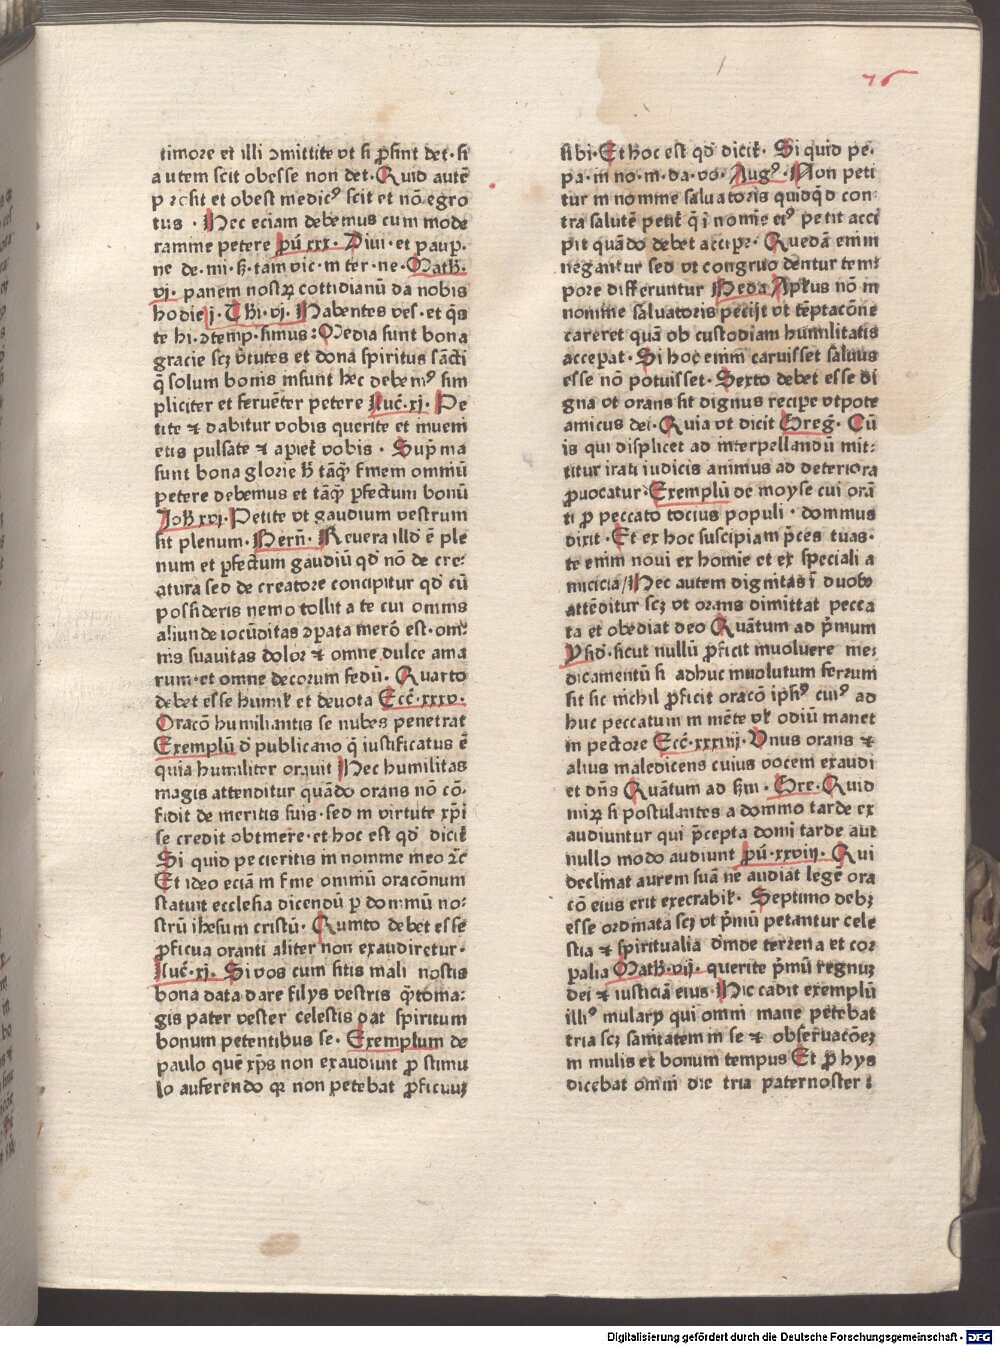 76
timore et illi ↄmittite vt si ꝓsint det· si
autem scit obesse non det· Quid autē
prosit et obest medicꝰ scit et nō egro
tus · Hec eciam debemus cum mode
ramine petere ꝓū xxx· Diui· et paup·
ne de· mi· h̵· tam vic· in ter· ne· Math̵·
vj· panem nostꝝ cottidianū da nobis
hodie j· Thi· vj· Habentes ves· et q̄s
te hi· ↄtemp· simus: Media sunt bona
gracie scꝫ v̄tutes et dona spiritus sācti
q̄ solum bonis insunt hec debemꝰ sim
pliciter et feruēter petere Luc̄· xj· Pe
tite ⁊ dabitur vobis querite et inueni
etis pulsate ⁊ apiet̄ vobis · Sup̄ma
sunt bona glorie h̵ tāꝙ finem omniū
petere debemus et tāꝙ ꝑfectum bonū
Joh̵ xvj· Petite vt gaudium vestrum
sit plenum· Bern̄· Reuera illd̄ ē ple
num et ꝑfectum gaudiū qd̄ nō de cre⸗
atura sed de creatore concipitur qd̄ cū
possideris nemo tollit a te cui omnis
aliunde iocūditas ↄpata merō est· om⸗
nis suauitas dolor ⁊ omne dulce ama
rum· et omne decorum fedū· Quarto
debet esse humiꝉ et deuota Ecc̄· xxxv·
Oracō humiliantis se nubes penetrat
Exemplū d̄ publicano q̄ iustificatus ē
quia humiliter orauit Hec humilitas
magis attenditur quādo orans nō cō⸗
fidit de meritis suis· sed in virtute xp̄i
se credit obtinere· et hoc est qd̄ dicit̄
Si quid pecieritis in nomine meo ⁊c̄
Et ideo eciā in fine omniū oracōnum
statuit ecclesia dicendū ꝑ dominū no⸗
strū ihesum cristū· Quinto debet esse
ꝓficua oranti aliter non exaudiretur·
Luc̄· xj· Si vos cum sitis mali nostis
bona data dare filys vestris q̄toma⸗
gis pater vester celestis dat spiritum
bonum petentibus se· Exemplum de
paulo quē xp̄s non exaudiuit ꝓ stimu
lo auferendo qꝛ non petebat ꝓficuuꝫ
sibi· Et hoc est qd̄ dicit̄· Si quid pe·
pa· in no· in· da· vo· Augꝰ· Non peti
tur in nomine saluatoris quidꝙd con⸗
tra salutē petit̄ q̄ i nomie eiꝰ petit acci
pit quādo debet accipe· Quedā enim
negantur sed vt congruo dentur tem⸗
pore differuntur Beda Aplus nō in
nomine saluatoris pecijt vt tēptacōne
careret quā ob custodiam humilitatis
acceperat· Si hoc enim caruisset saluus
esse nō potuisset· Sexto debet esse di
gna vt orans sit dignus recipe vtpote
amicus dei· Quia vt dicit Greg̅· Cū
is qui displicet ad interpellandū mit⸗
titur irati iudicis animus ad deteriora
ꝓuocatur· Exemplū de moyse cui orā
ti ꝓ peccato tocius populi · dominus
dixit· Et ex hoc suscipiam p̄ces tuas·
te enim noui ex homie et ex speciali a
micicia / Hec autem dignitas ī duobꝫ
attēditur scꝫ vt orans dimittat pecca
ta et obediat deo Quātum ad p̄mum
Ysid̄· sicut nullū ꝓficit inuoluere me⸗
dicamentū si adhuc inuolutum ferrum
sit sic nichil ꝓficit oracō ipsiꝰ cuiꝰ ad
huc peccatum in mēte vꝉ odiū manet
in pectore Ecc̄· xxxiiij· Vnus orans ⁊
alius maledicens cuius vocem exaudi
et dn̄s Quātum ad ẜm· Gre· Quid
miꝝ si postulantes a domino tarde ex
audiuntur qui p̄cepta domi tarde aut
nullo modo audiunt ꝓū· xxviij· Qui
declinat aurem suā ne audiat legē ora
cō eius erit execrabiꝉ· Septimo debꝫ
esse ordinata scꝫ vt p̄mū petantur cele
stia ⁊ spiritualia d̄inde terrena et cor
palia Math̵· vij· querite p̄mū regnuꝫ
dei ⁊ iusticiā eius· Hic cadit exemplū
illiꝰ mulary qui omni mane petebat
tria scꝫ sanitatem in se ⁊ obseruacōeꝫ
in mulis et bonum tempus Et ꝓ hys
dicebat omni die tria paternoster i
Digitalisierung gefördert durch die Deutsche Forschungsgemeinschaft - DFG